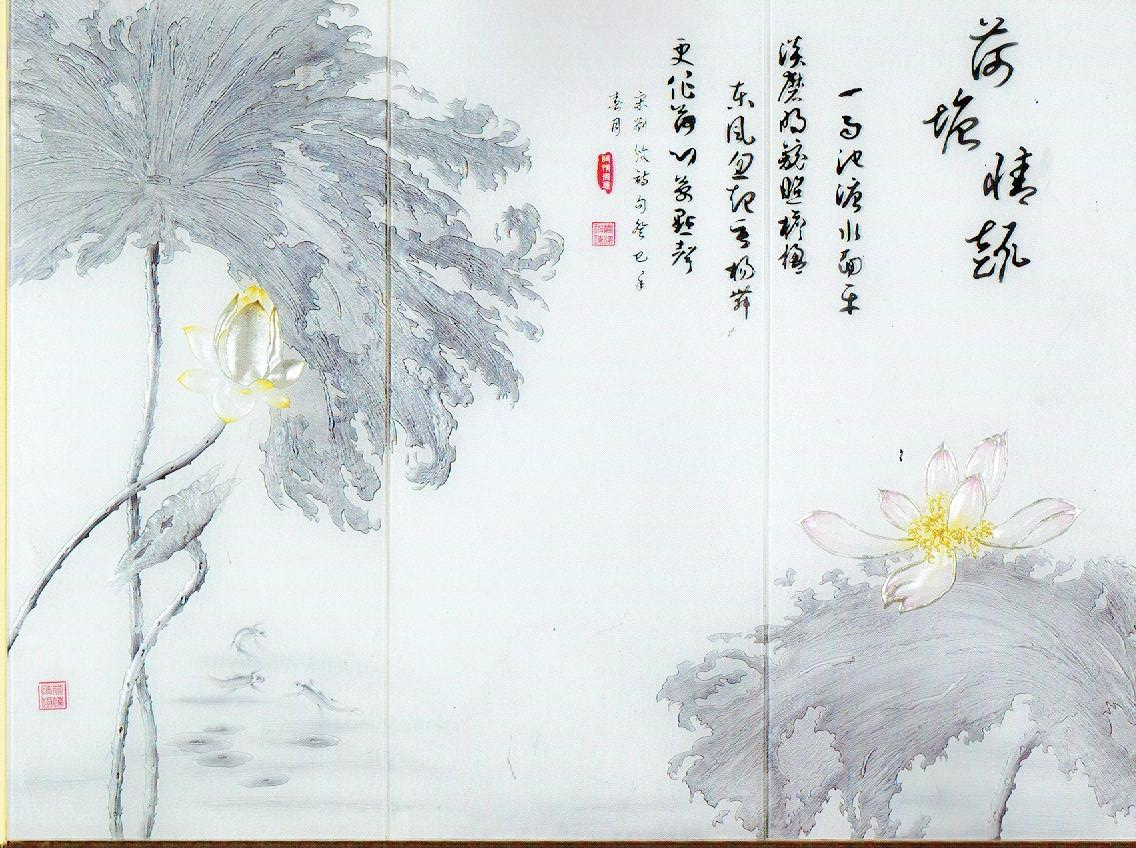 荷塘情韵
一雨池塘水面平
淡磨明鏡照檐楹
东风忽起垂杨舞
更作荷心萬點聲
宋刘攽诗句癸巳年
春月